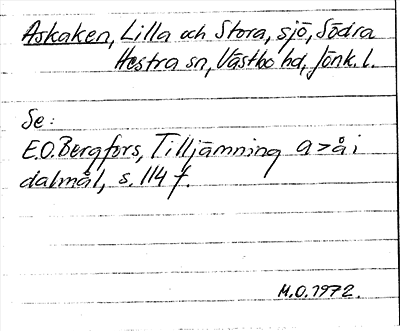 Askaken, Lilla och Stora, sjö, Södra
Hestra sn, Västbo hd, Jönk.l.
Se:
E.O.Bergfors, Tilljämning a>å i
dalmål, s. 114 f.
M.O.1972.